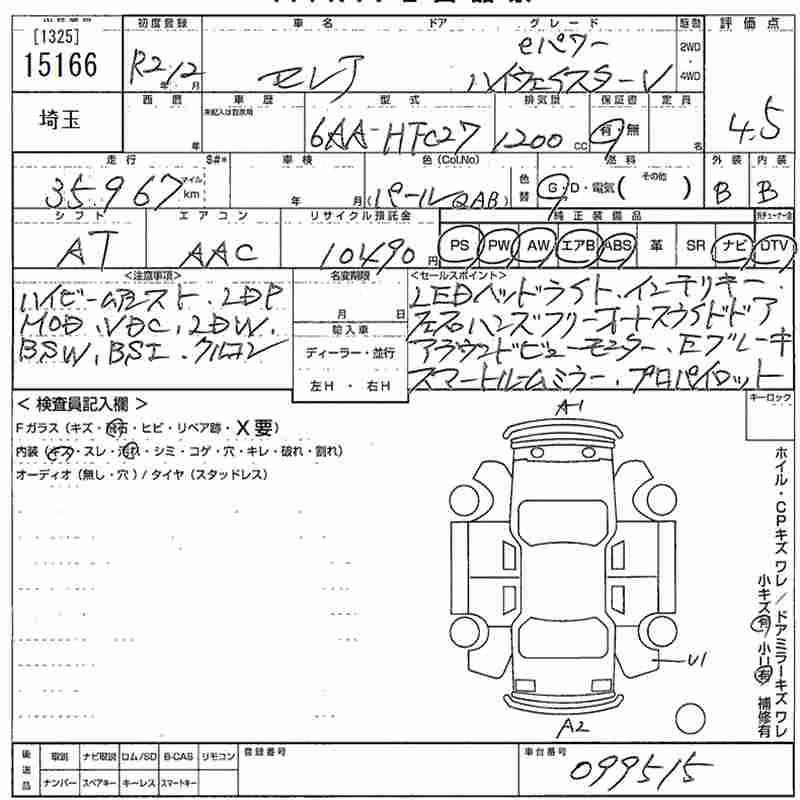 [1325]
15166
埼玉
初度登録 車名 ドア グレード 駆動 評価点
R2/12 年 月
セレナ
eパワー
ハイウェイスターV
2WD
4WD
4.5
西暦 車歴 型式 排気量 保証書 定員
年 未記入は自家用 6AA-HFC27 1200 CC 有・無 名
走行 S#* 車検 色(Col.No) 燃料 外装 内装
35967 マイル km 年 月 (パールQAB) 色替 G・D・電気( その他 ) B B
シフト エアコン リサイクル預託金 純正装備品
AT AAC 10490円 PS PW AW エアB ABS 革 SR ナビ DTV
<注意事項>
ハイビームアシスト、LDP
MOD、VDC、LDW、
BSW、BSI、クルコン
名変期限
月 日
輸入車
ディーラー・並行
左H ・ 右H
<セールスポイント>
LEDヘッドライト、インテリキー、
左右ハンズフリーオートスライドドア
アラウンドビューモニター、Eブレーキ
スマートルームミラー、プロパイロット
キーロック
< 検査員記入欄 >
Fガラス(キズ・飛石・ヒビ・リペア跡・X要)
内装(キズ・スレ・汚れ・シミ・コゲ・穴・キレ・破れ・割れ)
オーディオ(無し・穴)/タイヤ(スタッドレス)
A1
U1
A2
ホイル・CPキズ ワレ/ドアミラーキズ ワレ
小キズ有 小U有 補修有
後送品 取説 ナビ取説 ロム/SD B-CAS リモコン
ナンバー スペアキー キーレス スマートキー
登録番号
車台番号
099515